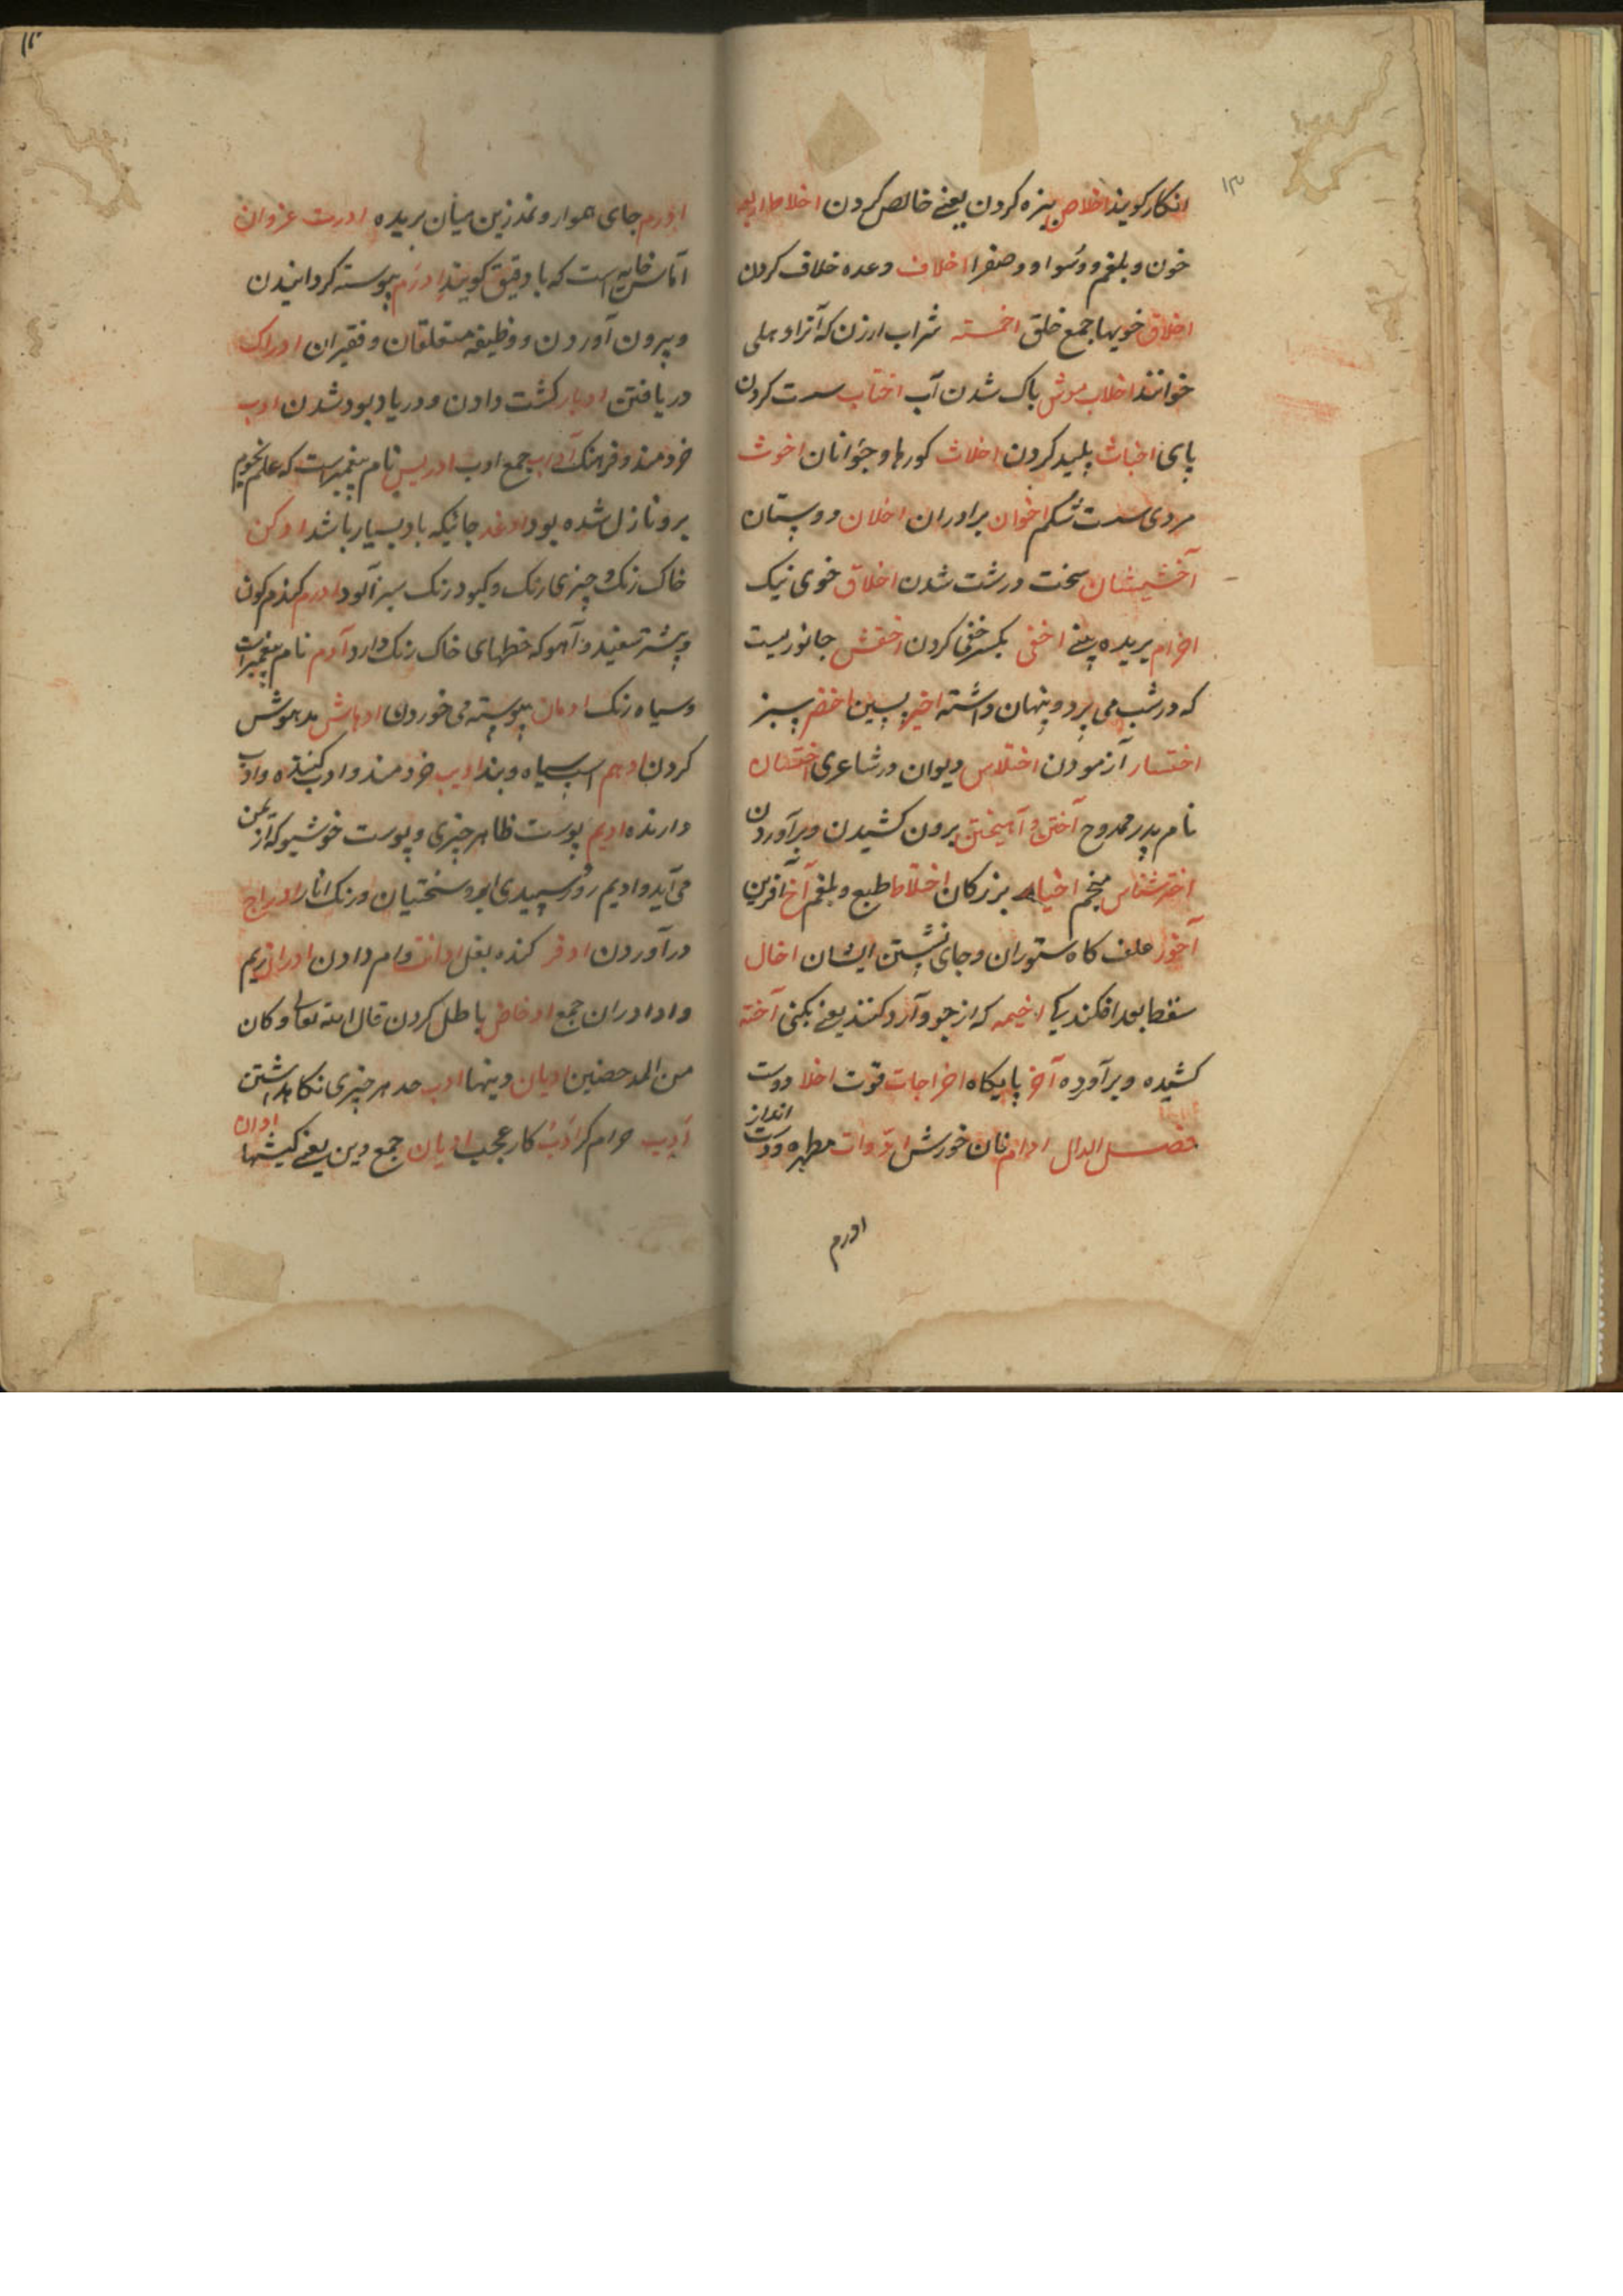 ۱۳
انکار کویند اخلاص بیزه کردن یعنے خالص کردن اخلاط اربعه
خون و بلغم و سودا و صفرا اخلاف وعده خلاف کردن
اخلاق خویها جمع خلق اخمسه شراب ارزن که آنرا
خوانند اخلاب پاک شدن آب اختاب سست کردن
پای اخباث پلید کردن اخلاث کورها و جوانان اخوث
مردی سست شکم اخوان برادران اخلان دوستان
سخت درشت شدن اخلاق خوی نیک
اخرام بریده بینے اخفی یکسر خفی کردن اخفش جانوریست
که در شب می پرد و پنهان داشته اخیر پسین اخضر سبز
اختبار آزمودن اختلاس دیوان در شاعری اختسان
نام پدر ممدوح آختن و آهیختن برون کشیدن و برآوردن
اختر شناس منجم اخیار بزرکان اختلاط طبع و بلغم آخ آفرین
آخور علف کاه ستوران و جای نشستن ایشان اخال
سقط افکندنی اخیمه که از جو و آرد کنند یعنے آخته
کشیده و برآورده آخر پایکاه اخراجات قوت اخلا دوست
فصل الدال ادام نان خورش ادوات مطهره و دست انداز
ادرم
ادرم جای هوار و نمد زین میان بریده ادرت غزوان
آماس خایه است که باد فتق کویند ادرم پیوسته کردانیدن
و بیرون آوردن و وظیفه متعلقان و فقیران ادراک
دریافتن ادبار کشت دادن و در باد بود شدن ادب
خردمند و فرهنک آداب جمع ادب ادریس نام پیغمبریست که علم نجوم
برو نازل شده بود ادغد جائیکه باد بسیار باشد ادکن
خاک رنک و چیزی رنک و کبود رنک سبز آلود ادرم کندم کون
و شتر سفید و آهو که خطهای خاک رنک دارد آدم نام پیغمبریست
و سیاه رنک ادمان پیوسته می خوردن ادهاش مدهوش
کردن ادهم اسپ سیاه و بند ادیب خردمند و ادب کننده و ادب
دارنده ادیم پوست ظاهر چیزی و پوست خوشبو که از یمن
می آید و ادیم روز سپیدی سختیان و رنک انار ادراج
درآوردن ادفر کنده بغل ادانت وام دادن
و ادا دران جمع ادحاض باطل کردن قال الله تعالی و کان
من المدحضین ادیان دینها ادب حد هر چیزی نکاهداشتن
ادیب حرام کر ادب کار عجب ادیان جمع دین یعنے کیشها ادان